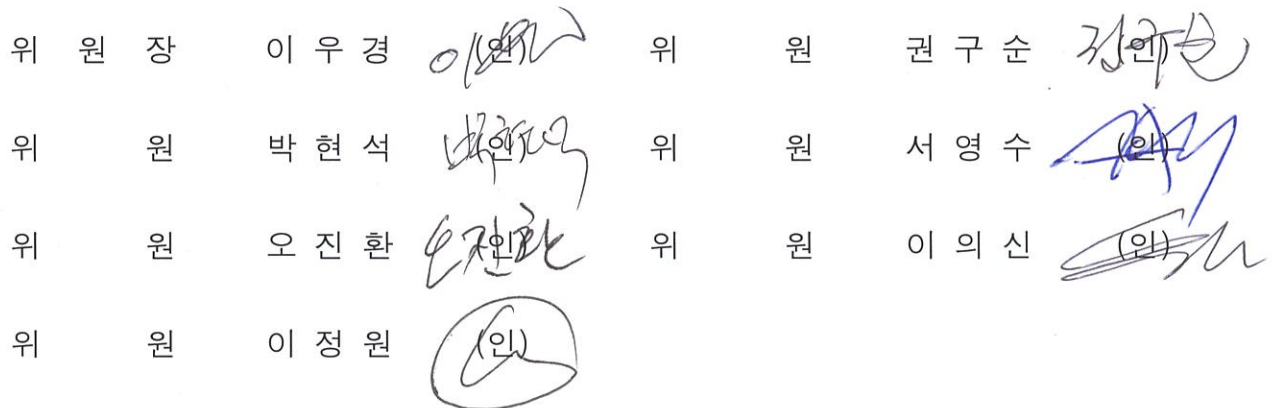 위 원 장 이 우 경 (인) 위 원 권 구 순 (인)
위 원 박 현 석 (인) 위 원 서 영 수 (인)
위 원 오 진 환 (인) 위 원 이 의 신 (인)
위 원 이 정 원 (인)